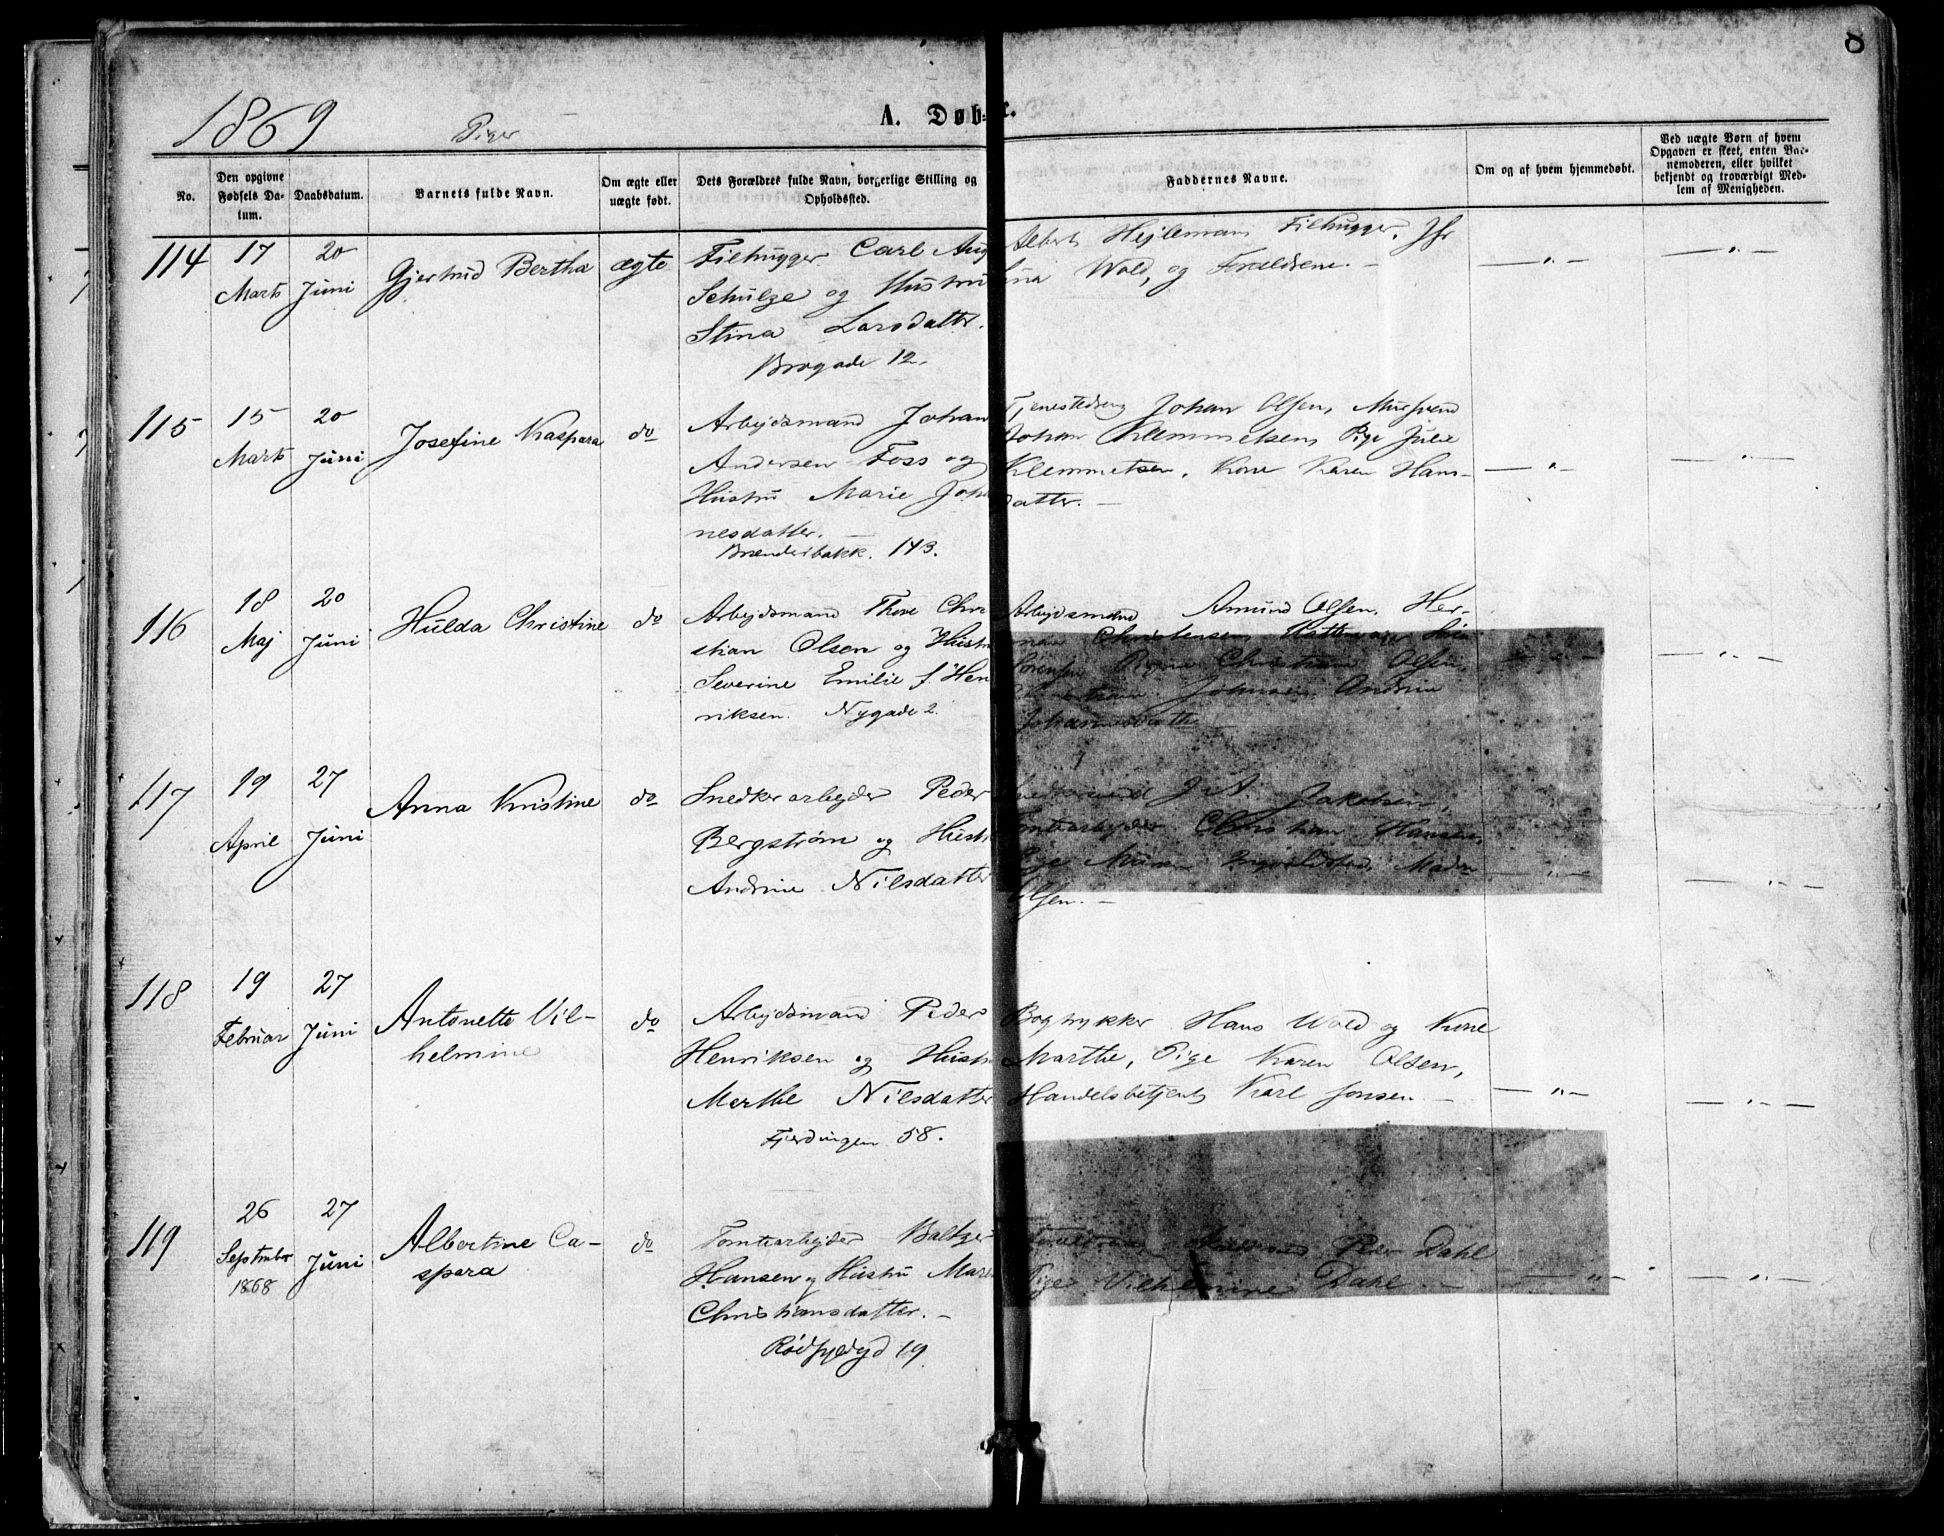 8
1869
Piger
A. Døb-
e.
No.
Den opgivne Fødsels Da-
tum.
Daabsdatum.
Barnets fulde Navn.
Om ægte eller
uægte født.
Dets Forældres fulde Navn, borgerlige Stilling og
Opholdssted.
Faddernes Navne.
Om og af hvem hjemmedøbt.
Ved uægte Børn af hvem
Opgaven er skeet, enten Bar-
nemoderen, eller hvilket
bekjendt og troværdigt Med-
lem af Menigheden.
114
17
Marts
20
Juni
Gjertrud Bertha
ægte
Filehugger Carl Aug
Schulze og Hustru
Stina Larsdatter.
Brogade 12.
Albert Filehugger, Jfr
Wold, og Forældrene. —
— „ —
— „ —
115
15
Marts
20
Juni
Josefine Kaspara
do
Arbejdsmand Johan
Andersen Foss og
Hustru Marie Joha
nesdatter. —
Brænderibakk. 143.
Tjenestedreng Johan Olsen, Mursvend
Johan Klemmetsen, Pige Julie
Klemmetsen, Kone Karen Hans-
datter. —
— „ —
— „ —
116
18
Maj
20
Juni
Hulda Christine
do
Arbejdsmand Thove Chri
stian Olsen og Hustru
Severine Emilie f. Hen
riksen. Nygade 2.
Arbejdsmænd Amund Olsen, Her-
man Christensen,
Christian Olsen,
Johnsen, Andrine
Johannesdatter
— „ —
— „ —
117
19
April
27
Juni
Anna Kristine
do
Snedkerarbejder Peder
Bergstrøm og Hustr
Andrine Nilsdatter
Snedkersvend J. A. Jakobsen,
Tomtearbejder Christian Hansen,
Pige
Olsen. —
— „ —
— „ —
118
19
Februar
27
Juni
Antonette Vil-
helmine
do
Arbejdsmand Peder
Henriksen og Hustr
Marthe Nilsdatter
Fjerdingen 58.
Bogtrykker Hans Wold og Kone
Marthe, Pige Karen Olsen,
Handelsbetjent Karl Jonsen. —
— „ —
— „ —
119
26
September
1868
27
Juni
Albertine Ca-
spara
do
Tomtearbejder Baltzer
Hansen og Hustru Mare
Christiansdatter. —
Rødfyldgd 19
Forældrene, Peder Dahl
Pige Vilhelmine Dahl. —
— „ —
— „ —